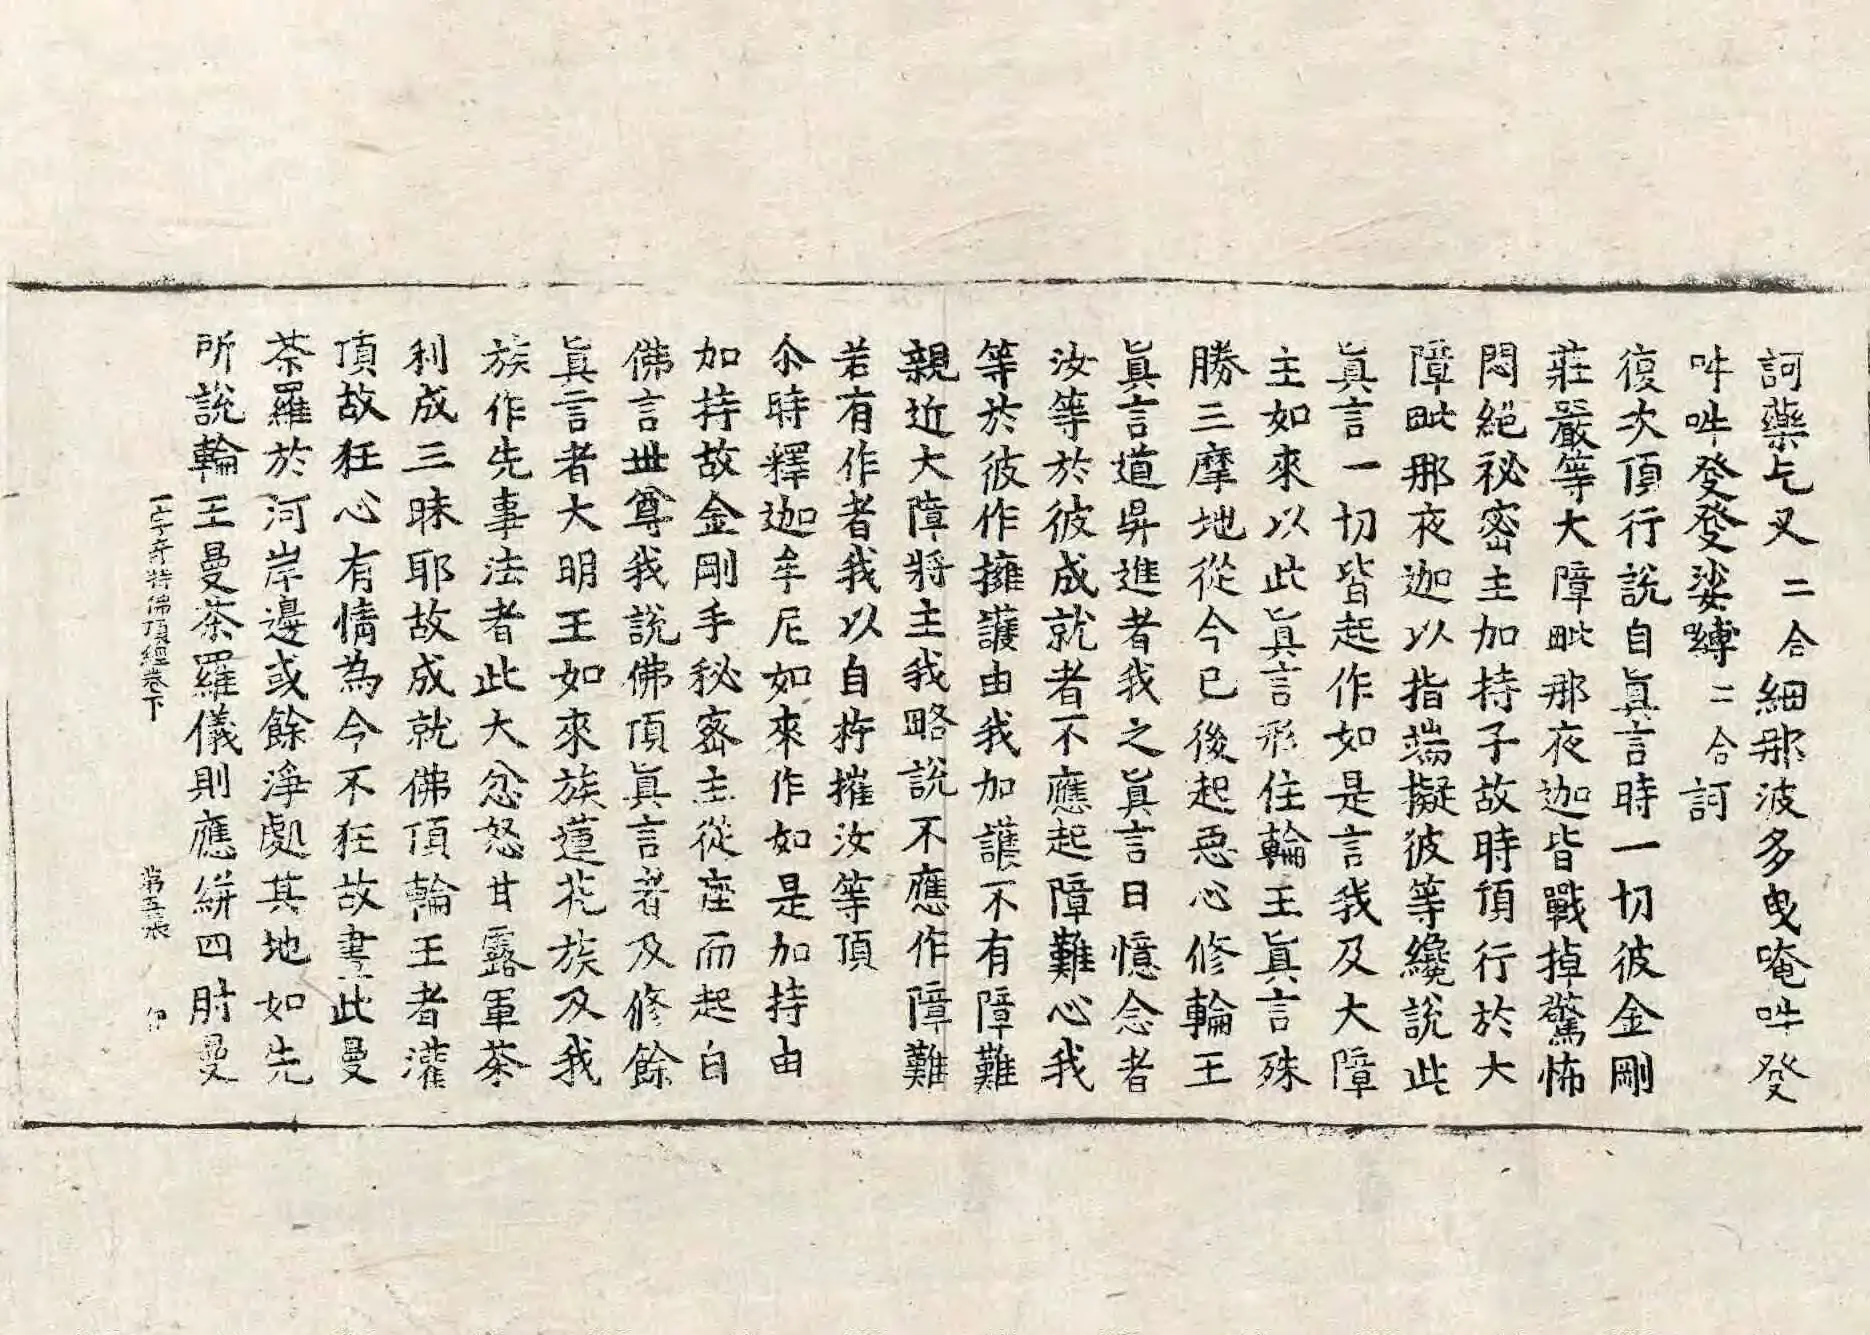 訶藥乞叉二合細那波多曳唵吽發
吽吽發發娑嚩二合訶
復次頂行說自眞言時一切彼金剛
莊嚴等大障毗那夜迦皆戰掉驚怖
悶絕祕密主加持子故時頂行於大
障毗那夜迦以指端擬彼等纔說此
眞言一切皆起作如是言我及大障
主如來以此眞言形住輪王眞言殊
勝三摩地從今已後起惡心修輪王
眞言道昇進者我之眞言日憶念者
汝等於彼成就者不應起障難心我
等於彼作擁護由我加護不有障難
親近大障將主我略說不應作障難
若有作者我以自杵摧汝等頂
尒時釋迦牟尼如來作如是加持由
加持故金剛手秘密主從座而起白
佛言世尊我說佛頂眞言者及修餘
眞言者大明王如來族蓮花族及我
族作先事法者此大忿怒甘露軍茶
利成三昧耶故成就佛頂輪王者灌
頂故狂心有情為今不狂故畫此曼
茶羅於河岸邊或餘淨處其地如先
所說輪王曼茶羅儀則應絣四肘曼
一字奇特佛頂經卷下 第五張 伊